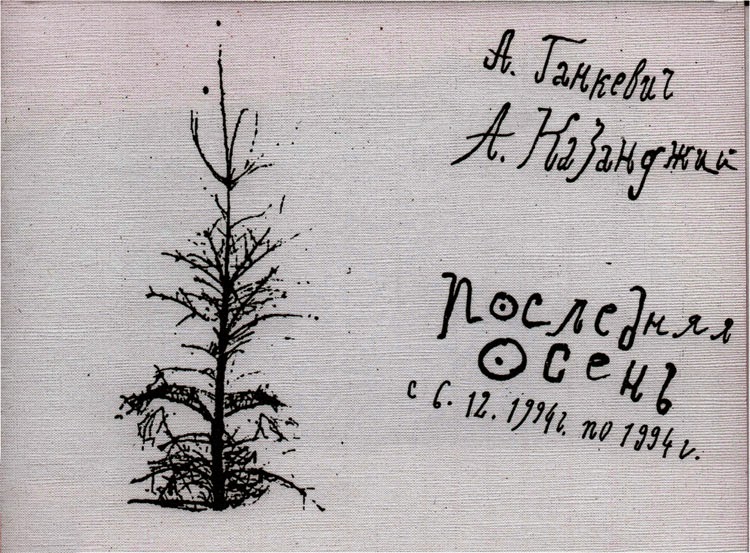 А. Ганкевич
А. Казанджий
последняя
осень
с 6. 12. 1994г. по 1994 г.